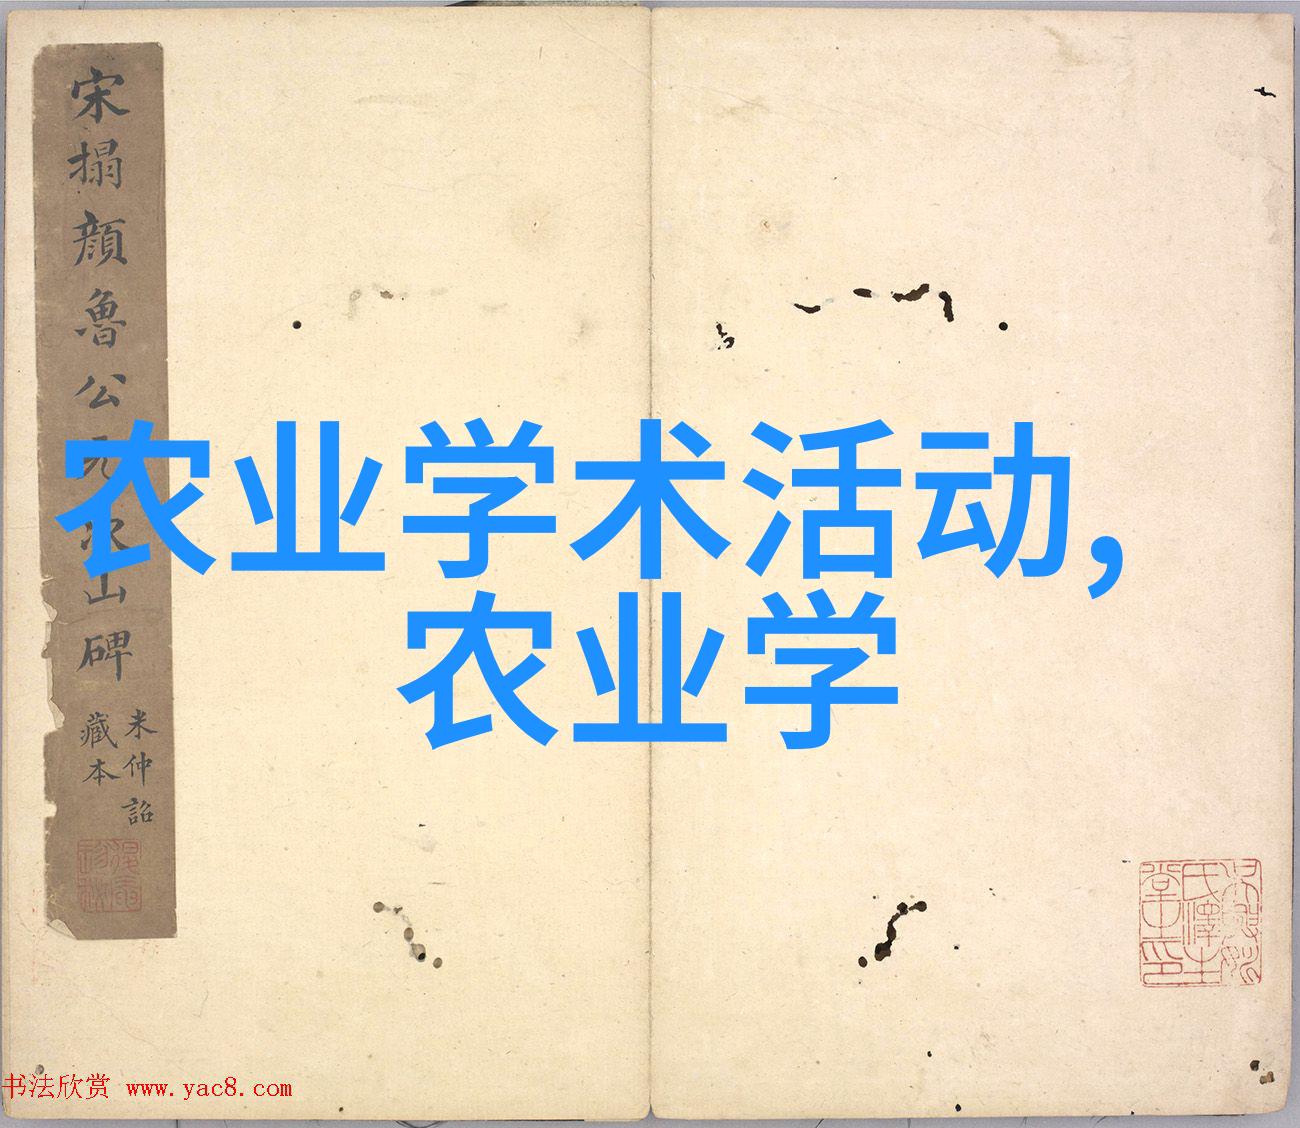 宋搨顔魯公元次山碑
米仲詔
藏本
农业学术活动,
农业学
书法欣赏 www.yac8.com